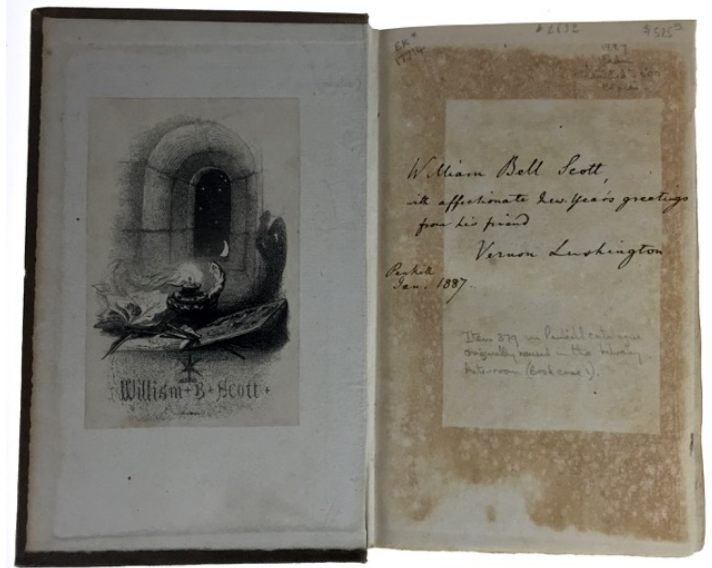 William + B + Scott +
# 2632
$525
1887
William Bell Scott,
with affectionate New Year's greetings
from his friend
Vernon Lushington
Penkill
Jan. 1887.
Item 379 in Penkill catalogue
originally housed in the
(Bookcase 1).